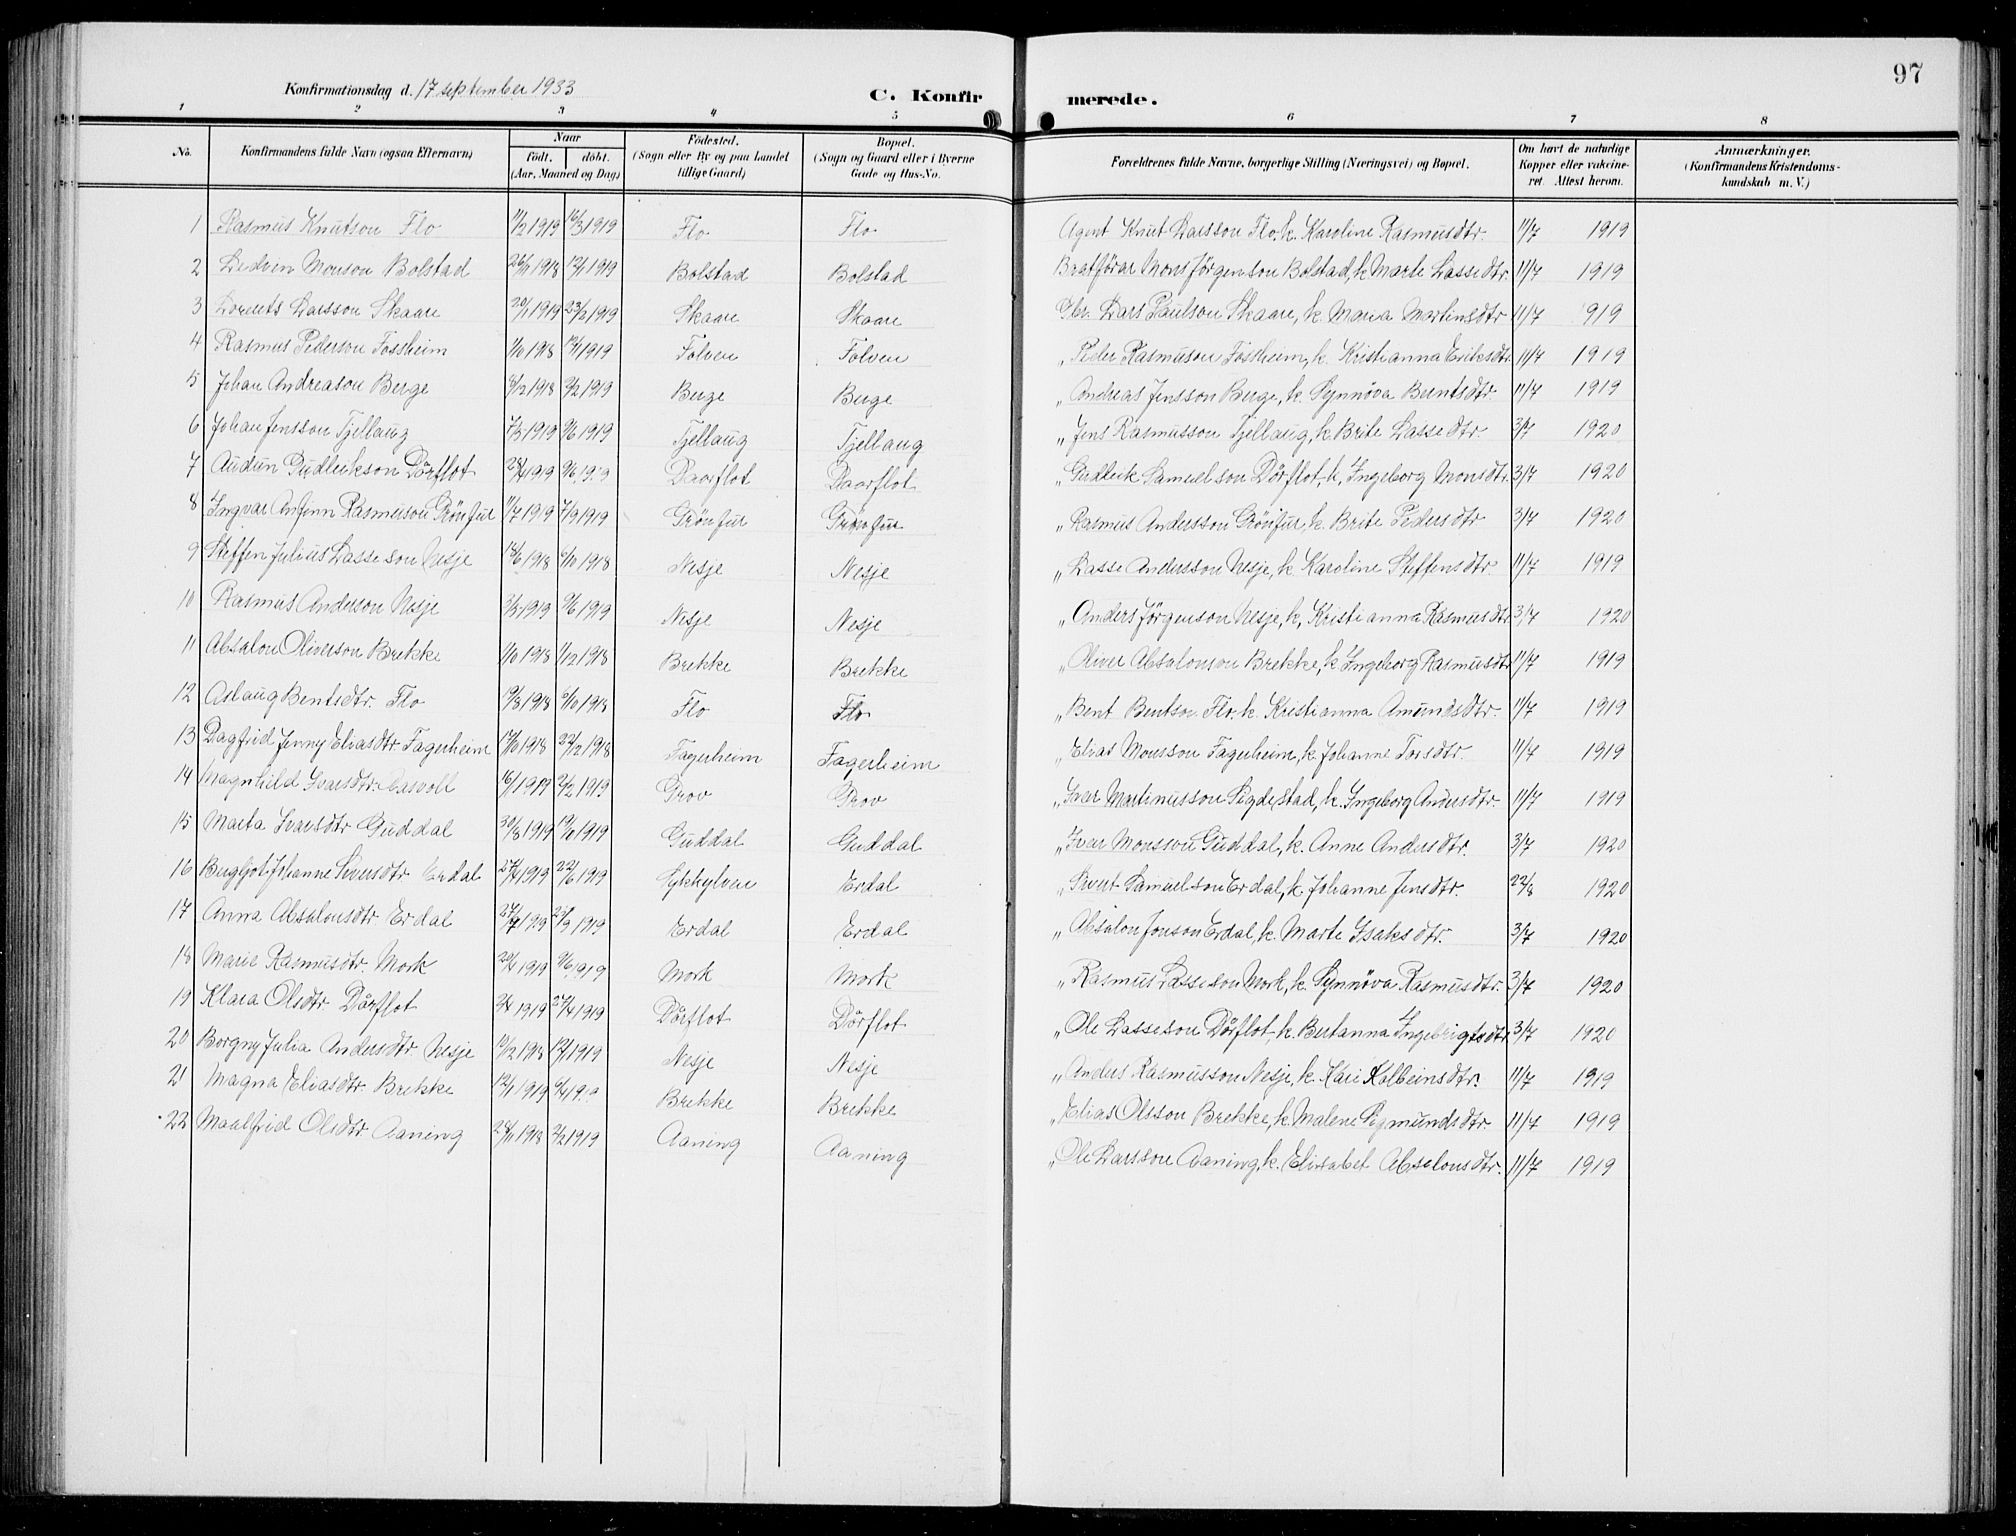 97
Konfirmationsdag d. 17 september 1933
C. Konfirmerede.
1 2 3 4 5 6 7 8
No. Konfirmandens fulde Navn (ogsaa Efternavn) Naar født. døbt. (Aar, Maaned og Dag) Fødested. (Sogn eller By og paa Landet tillige Gaard) Bopæl. (Sogn og Gaard eller i Byerne Gade og Hus-No. Forældrenes fulde Navne, borgerlige Stilling (Næringsvei) og Bopæl. Om havt de naturlige Kopper eller vakcineret. Attest herom. Anmærkninger. (Konfirmandens Kristendomskundskab m. V.)
1 Rasmus Knutson Flo 11/2 1919 16/3 1919 Flo Flo Agent Knut Larsson Flo, k. Karoline Rasmusdtr. 11/7 1919
2 Ledvin Monson Bolstad 26/11 1918 12/1 1919 Bolstad Bolstad Bratförar Mons Jörgenson Bolstad, k. Marte Lassedtr. 11/7 1919
3 Lorents Larsson Skaare 20/1 1919 23/2 1919 Skaare Skaare Gbr. Lars Paulson Skaare, k. Maria Martinsdtr. 11/7 919
4 Rasmus Pederson Fossheim 1/10 1918 12/1 1919 Folven Folven „ Peder Rasmuson Fossheim, k. Kristianna Eriksdtr. 11/7 1919
5 Johan Andreason Berge 8/12 1918 2/2 1919 Berge Berge „ Andreas Jensson Berge, k. Synnöva Bentsdtr. 11/7 1919
6 Johan Jensson Tjellaug 7/3 1919 9/6 1919 Tjellaug Tjellaug „ Jens Rasmusson Tjellaug, k. Brite Lassedtr. 3/7 1920
7 Audun Gudleikson Dörflot 28/4 1919 9/6 1919 Daarflot Daarflot „ Gudleik Samuelson Dörflot, k. Ingeborg Monsdtr. 3/7 1920
8 Ingvar Anfinn Rasmuson Grönfur 11/7 1919 7/9 1919 Grönfur Grönfur „ Rasmus Andersson Grönfur, k. Brite Pedersdtr 3/7 1920
9 Steffen Julius Lasseson Nesje 18/6 1918 6/10 1918 Nesje Nesje „ Lasse Andersson Nesje, k. Karoline Steffensdtr. 11/7 1919
10 Rasmus Anderson Nesje 3/3 1919 9/6 1919 Nesje Nesje „ Anders Jörgenson Nesje, k. Kristianna Rasmusdtr. 3/7 1920
11 Absalon Oliverson Brekke 1/10 1918 1/12 1918 Brekke Brekke „ Oliver Absalonson Brekke, k. Ingeborg Rasmusdtr. 11/7 1919
12 Aslaug Bentsdtr. Flo 19/8 1918 6/10 1918 Flo Flo „ Bent Bentson Flo, k. Kristianna Amundsdtr. 11/7 1919
13 Dagfrid Jenny Eliasdtr. Fagerheim 17/10 1918 22/12 1918 Fagerheim Fagerheim „ Elias Monsson Fagerheim, k. Johanne Torsdtr. 11/7 1919
14 Magnhild Ivarsdtr. Aasvoll 16/1 1919 2/2 1919 Prov Prov „ Ivar Martinusson Sigdestad, k. Ingeborg Andersdtr. 11/7 1919
15 Marta Ivarsdtr Guddal 30/8 1919 19/10 1919 Guddal Guddal „ Ivar Monsson Guddal, k. Anne Andersdtr. 3/7 1920
16 Bergljot Johanne Siversdtr Erdal 27/4 1919 22/6 1919 Sykkylven Erdal „ Sivert Samuelson Erdal, k. Johanne Jensdtr. 22/8 1920
17 Anna Absalonsdtr Erdal 27/7 1919 28/9 1919 Erdal Erdal „ Absalon Jonson Erdal, k. Marte Isaksdtr. 3/7 1920
18 Marie Rasmusdtr. Mork 20/4 1919 9/6 1919 Mork Mork „ Rasmus Lasseson Mork, k. Synnöva Rasmusdtr. 3/7 1920
19 Klara Olsdtr. Dörflot 2/4 1919 27/4 1919 Dörflot Dörflot „ Ole Lasseson Dörflot, k. Bertanna Ingebrigtsdtr. 3/7 1920
20 Borgny Julia Andersdtr Nesje 10/12 1918 12/1 1919 Nesje Nesje „ Anders Rasmusson Nesje, k. Kari Kolbeinsdtr. 11/7 1919
21 Magna Eliasdtr. Brekke 12/1 1919 6/4 1919 Brekke Brekke „ Elias Olsson Brekke, k. Malene Sigmundsdtr. 11/7 1919
22 Maalfrid Olsdtr. Aaning 28/11 1918 2/2 1919 Aaning Aaning „ Ole Larsson Aaning, k. Elisabet Absalonsdtr. 11/7 1919